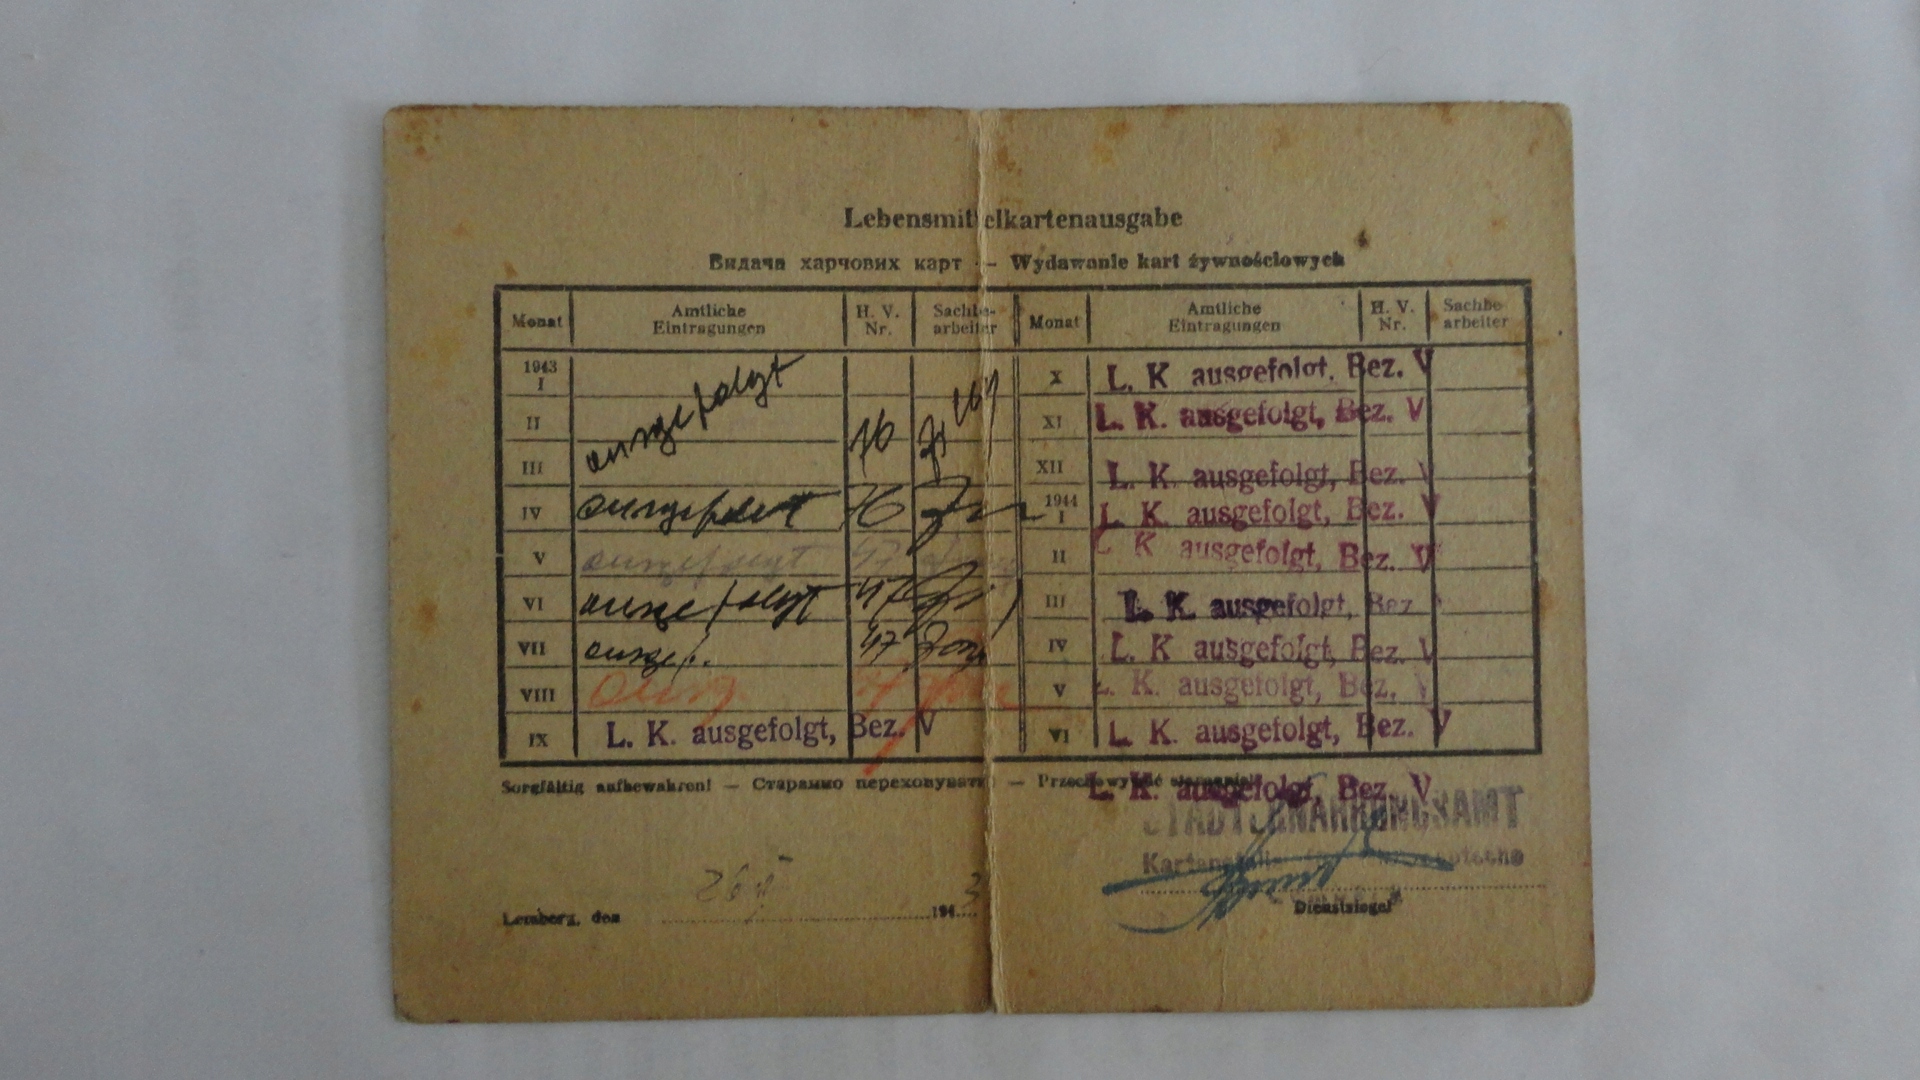 Lebensmittelkartenausgabe
Видача харчових карт — Wydawanie kart żywnościowych
Monat Amtliche Eintragungen H. V. Nr. Sachbe-arbeiter Monat Amtliche Eintragungen H. V. Nr. Sachbe-arbeiter
1943 I X L. K ausgefolgt, Bez. V
II ausgefolgt 76 XI L. K. ausgefolgt, Bez. V
III XII L. K. ausgefolgt, Bez. V
IV ausgefolgt 76 1944 I L. K. ausgefolgt, Bez. V
V ausgefolgt 47 II L K ausgefolgt, Bez. V
VI ausgefolgt 47 III L. K. ausgefolgt, Bez
VII ausgef. 47 IV L. K ausgefolgt, Bez. V
VIII ausg. V L. K. ausgefolgt, Bez. V
IX L. K. ausgefolgt, Bez. V VI L. K. ausgefolgt, Bez. V
Sorgfältig aufbewahren! — Старанно переховувати — Przechowywać
L. K. ausgefolgt, Bez. V
STADTERNÄHRUNGSAMT
Lemberg, den 1943
Dienstsiegel